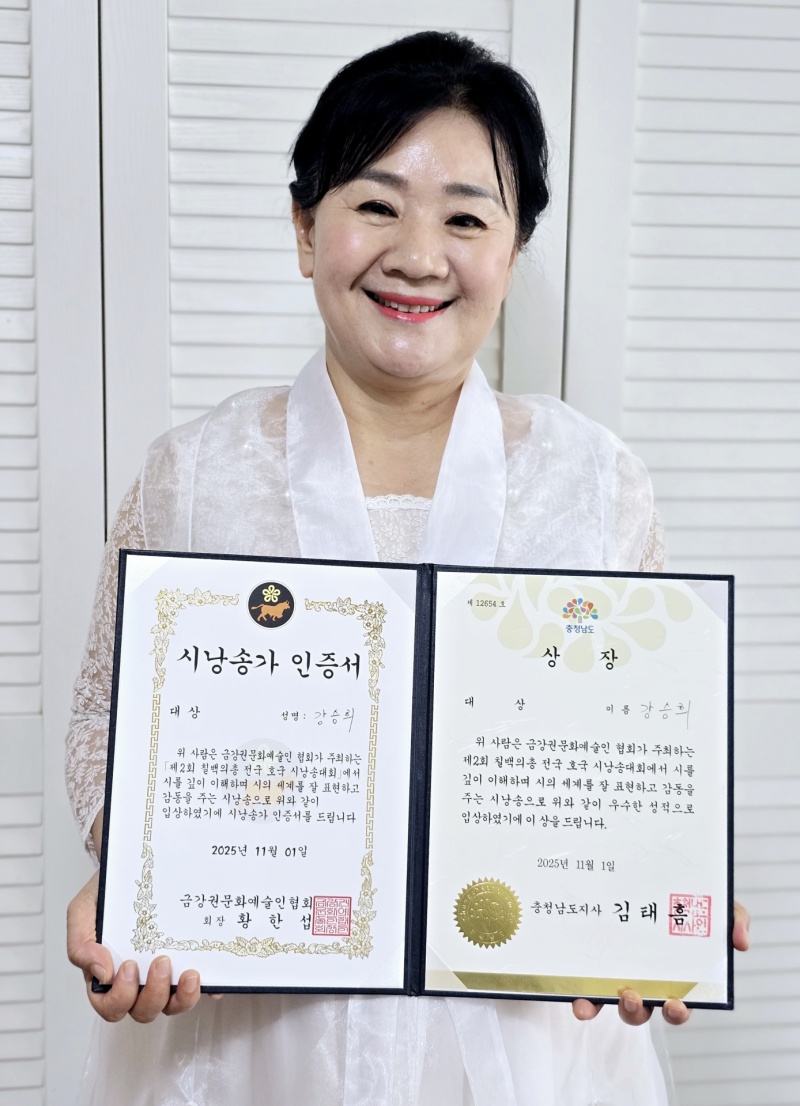 시낭송가 인증서
대상
성명: 강승희
위 사람은 금강권문화예술인 협회가 주최하는
「제2회 칠백의총 전국 호국 시낭송대회」에서
시를 깊이 이해하며 시의 세계를 잘 표현하고
감동을 주는 시낭송으로 위와 같이
입상하였기에 시낭송가 인증서를 드립니다
2025년 11월 01일
금강권문화예술인협회
회장 황한섭
제 12654 호
충청남도
상장
대상
이름 강승희
위 사람은 금강권문화예술인 협회가 주최하는
제2회 칠백의총 전국 호국 시낭송대회에서 시를
깊이 이해하며 시의 세계를 잘 표현하고 감동을
주는 시낭송으로 위와 같이 우수한 성적으로
입상하였기에 이 상을 드립니다.
2025년 11월 1일
충청남도지사 김태흠